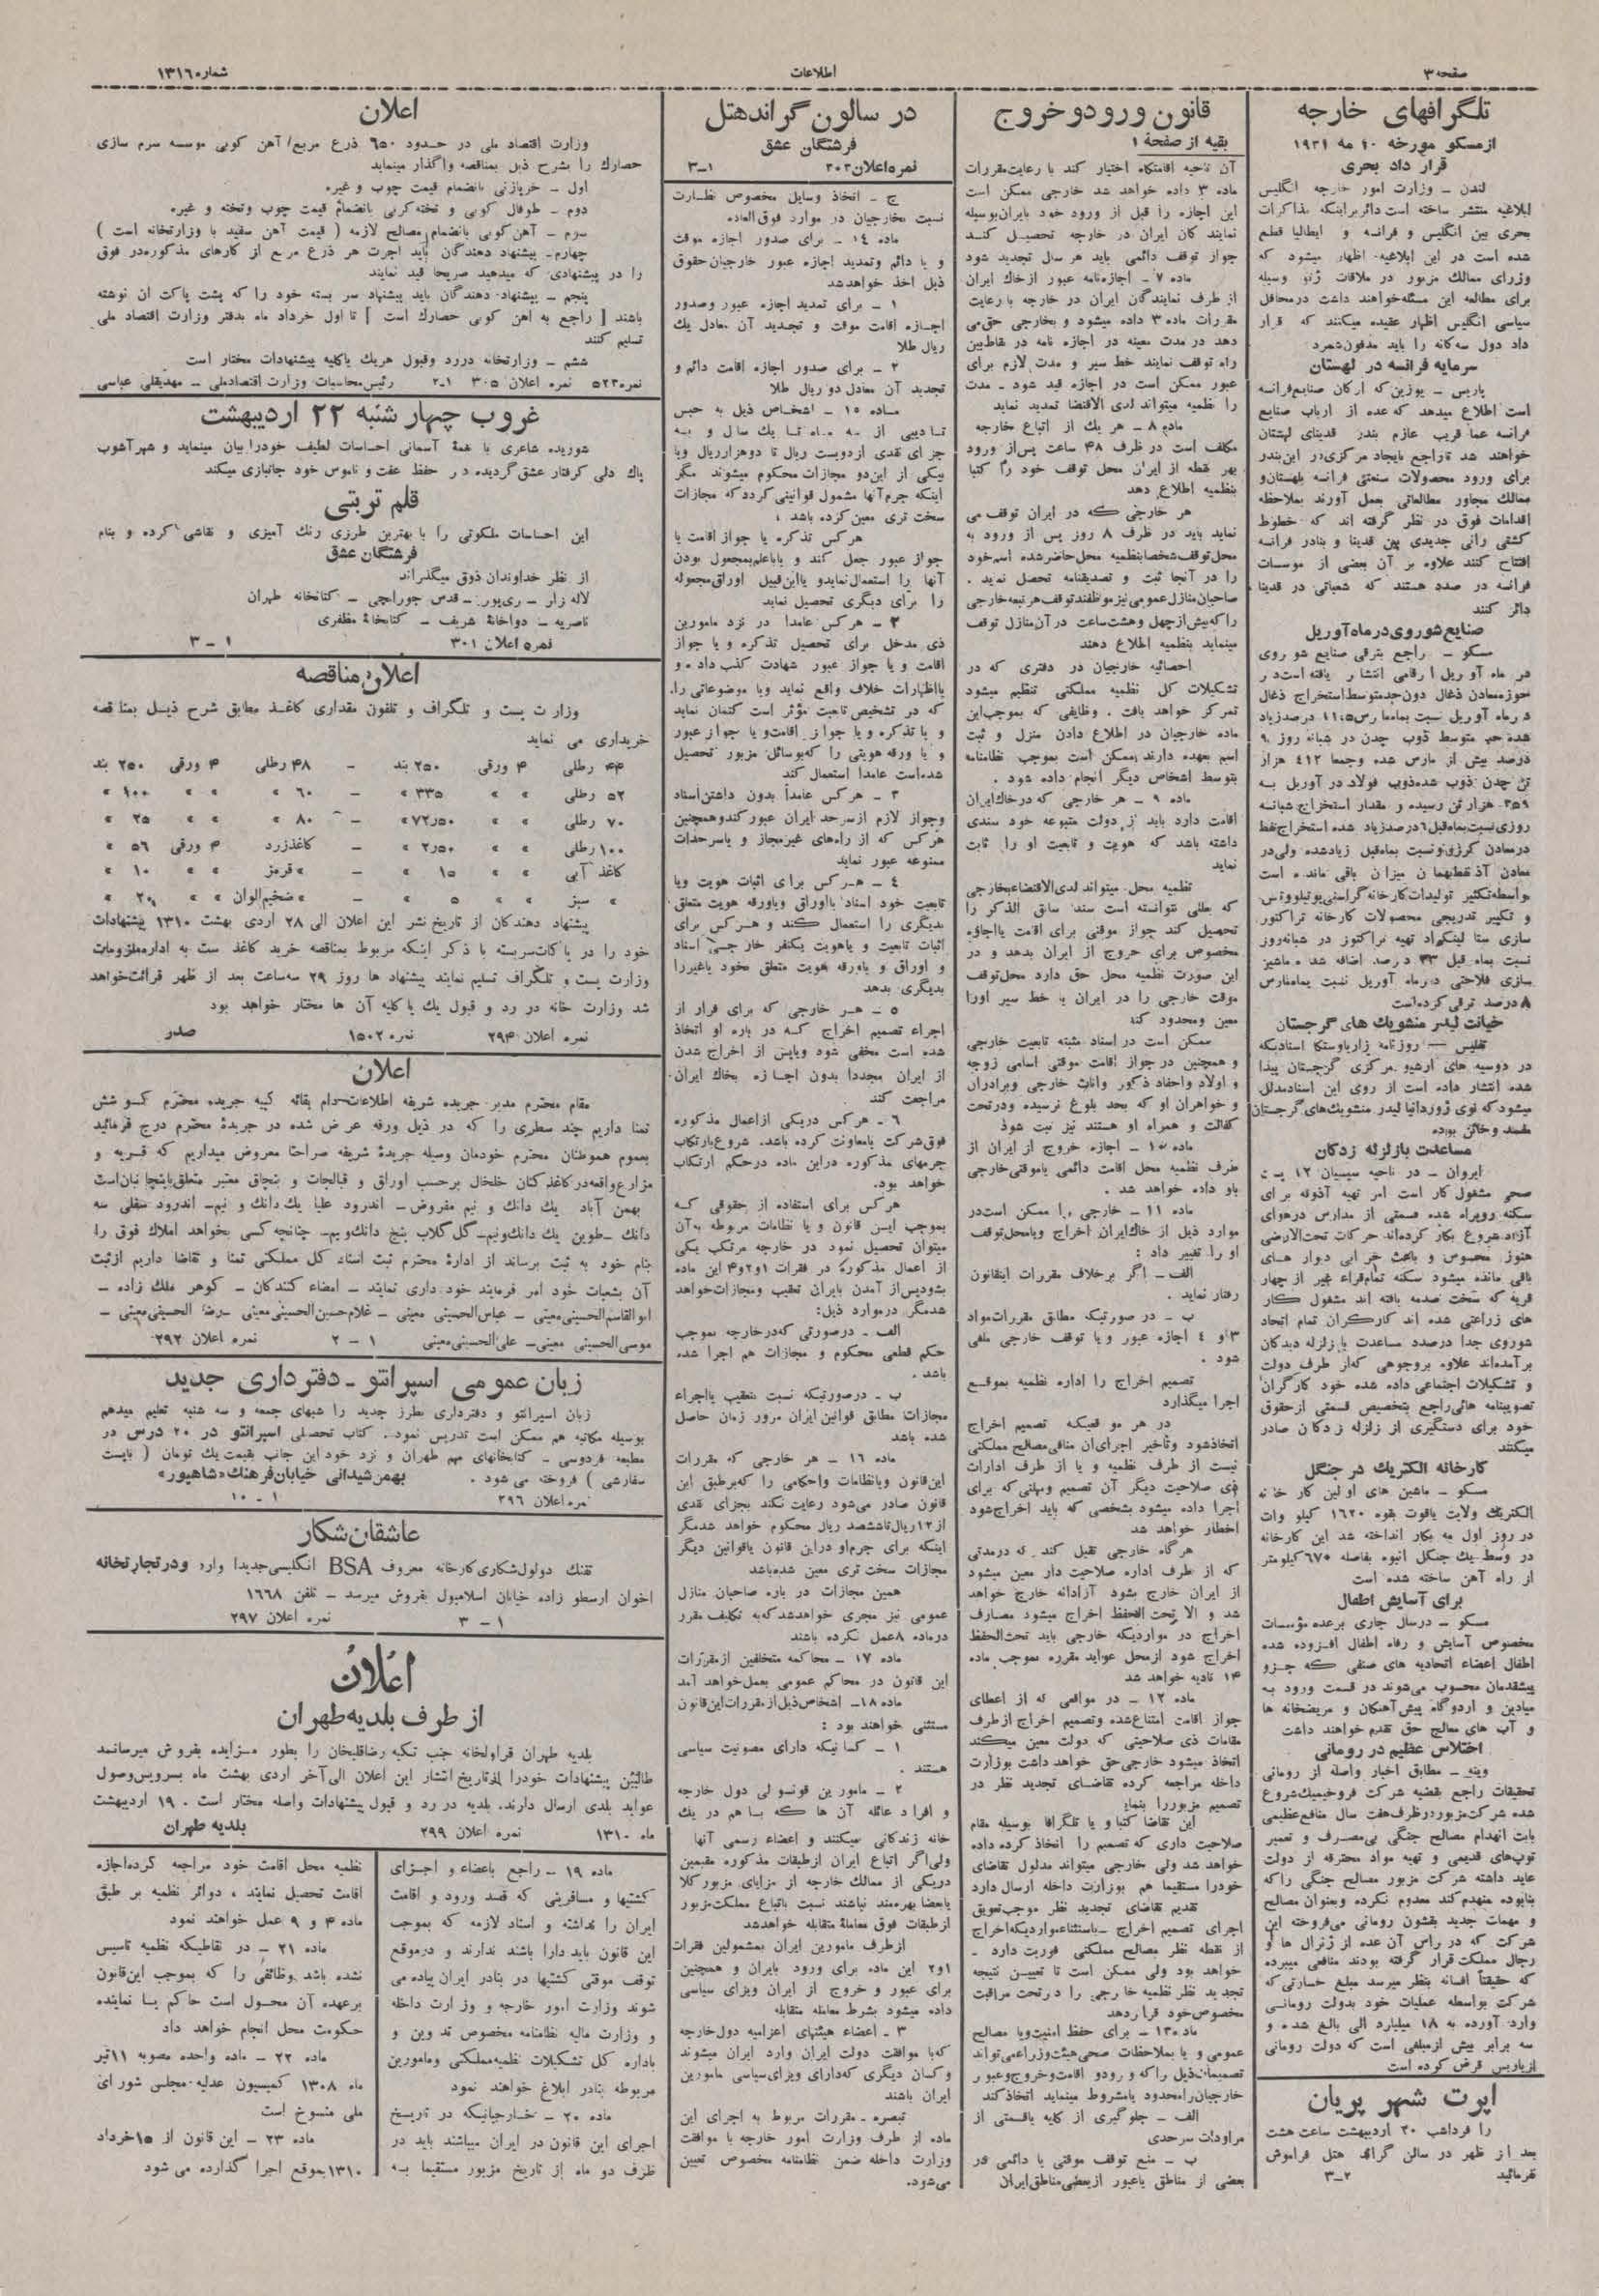 صفحه ۳
اطلاعات
شماره ۱۳۱۶
تلگرافهای خارجه
از مسکو مورخه ۱۰ مه ۱۹۳۱
قرار داد بحری
لندن – وزارت امور خارجه انگلیس
ابلاغیه منتشر ساخته است دائر براینکه مذاکرات
بحری بین انگلیس و فرانسه و ایطالیا قطع
شده است در این ابلاغیه اظهار میشود که
وزرای ممالک مزبور در ملاقات ژنو وسیله
برای مطالعه این مسئله خواهند داشت در محافل
سیاسی انگلیس اظهار عقیده میکنند که قرار
داد دول سه گانه را باید مدفون شمرد
سرمایه فرانسه در لهستان
پاریس – یوزین که ارکان صنایع فرانسه
است اطلاع میدهد که عده از ارباب صنایع
فرانسه عما قریب عازم بندر قدینای لهستان
خواهند شد تا راجع بایجاد مرکزی در این بندر
برای ورود محصولات صنعتی فرانسه بلهستان و
ممالک مجاور مطالعاتی بعمل آورند بملاحظه
اقدامات فوق در نظر گرفته اند که خطوط
کشتی رانی جدیدی بین قدینا و بنادر فرانسه
افتتاح کنند علاوه بر آن بعضی از موسسات
فرانسه در صدد هستند که شعباتی در قدینا
دائر کنند
صنایع شوروی در ماه آوریل
مسکو – راجع بترقی صنایع شوروی
در ماه آوریل ارقامی انتشار یافته است در
حوزه معادن ذغال دون حد متوسط استخراج ذغال
در ماه آوریل نسبت بماه مارس ۱۱٫۵ درصد زیاد
شده حد متوسط ذوب چدن در شبانه روز ۹
درصد بیش از مارس شده وجمعا ۴۱۲ هزار
تن چدن ذوب شده ذوب فولاد در آوریل به
۳۵۹ هزار تن رسیده و مقدار استخراج شبانه
روزی نسبت بماه قبل ۶ درصد زیاد شده استخراج نفط
در معادن گرزنی نسبت بماه قبل زیاد شده ولی در
معادن آذنفط بهمان میزان باقی مانده است
بواسطه تکثیر تولیدات کارخانه گراسنی پوتیلووتس
و تکبیر تدریجی محصولات کارخانه تراکتور
سازی ستالینگراد تهیه تراکتور در شبانه روز
نسبت بماه قبل ۳۳ درصد اضافه شد ماشین
سازی فلاحتی در ماه آوریل نسبت بماه مارس
۸ درصد ترقی کرده است
خیانت لیدر منشویک های گرجستان
تفلیس – روزنامه زاریاوستکا اسنادیکه
در دوسیه های ارشیو مرکزی گرجستان پیدا
شده انتشار داده است از روی این اسناد مدلل
میشود که نوی ژوردانیا لیدر منشویک های گرجستان
مفسد و خائن بوده
مساعدت بازلزله زدگان
ایروان – در ناحیه سیسیان ۱۲ پست
صحی مشغول کار است امر تهیه آذوقه برای
سکنه روبراه شده قسمتی از مدارس در هوای
آزاد شروع بکار کرده اند حرکات تحت الارضی
هنوز محسوس و باعث خرابی دیوار های
باقی مانده میشود سکنه تمام قراء غیر از چهار
قریه که سخت صدمه یافته اند مشغول کار
های زراعتی شده اند کارگران تمام اتحاد
شوروی جدا درصدد مساعدت با زلزله دیدگان
برآمده اند علاوه بروجوهی که از طرف دولت
و تشکیلات اجتماعی داده شده خود کارگران
تصویبنامه هائی راجع بتخصیص قسمتی از حقوق
خود برای دستگیری از زلزله زدگان صادر
میکنند
کارخانه الکتریک در جنگل
مسکو – ماشین های اولین کارخانه
الکتریک ولایت یاقوت بقوه ۱۶۲۰ کیلو وات
در روز اول مه بکار انداخته شد این کارخانه
در وسط یک جنگل انبوه بفاصله ۶۷۰ کیلومتر
از راه آهن ساخته شده است
برای آسایش اطفال
مسکو – درسال جاری برعده مؤسسات
مخصوص آسایش و رفاه اطفال افزوده شده
اطفال اعضاء اتحادیه های صنفی که جزو
پیشقدمان محسوب می‌شوند در قسمت ورود به
میادین و اردوگاه پیش آهنگان و مریضخانه ها
و آب های معالج حق تقدم خواهند داشت
اختلاس عظیم در رومانی
وینه – مطابق اخبار واصله از رومانی
تحقیقات راجع بقضیه شرکت فروخیمیک شروع
شده شرکت مزبور در ظرف هفت سال منافع عظیمی
بابت انهدام مصالح جنگی بی‌مصرف و تعمیر
توپهای قدیمی و تهیه مواد محترقه از دولت
عاید داشته شرکت مزبور مصالح جنگی را که
بنابوده منهدم کند معدوم نکرده و بعنوان مصالح
و مهمات جدید بقشون رومانی می‌فروخته این
شرکت که در رأس آن عده از ژنرال ها و
رجال مملکت قرار گرفته بودند منافعی میبرده
که حقیقتاً افسانه بنظر میرسد مبلغ خسارتی که
شرکت بواسطه عملیات خود بدولت رومانی
وارد آورده به ۱۸ میلیارد الی بالغ شده و
سه برابر بیش از مبلغی است که دولت رومانی
از پاریس قرض کرده است
اپرت شهر پریان
را فرداشب ۲۰ اردیبهشت ساعت هشت
بعد از ظهر در سالن گراند هتل فراموش
نفرمائید ۲ــ۳
قانون ورود و خروج
بقیه از صفحه ۱
آن ناحیه اقامتگاه اختیار کند با رعایت مقررات
ماده ۳ داده خواهد شد خارجی ممکن است
این اجازه را قبل از ورود خود بایران بوسیله
نمایندگان ایران در خارجه تحصیل کند
جواز توقف دائمی باید هر سال تجدید شود
ماده ۷ – اجازه نامه عبور از خاک ایران
از طرف نمایندگان ایران در خارجه با رعایت
مقررات ماده ۳ داده میشود و بخارجی حق می
دهد در مدت معینه در اجازه نامه در نقاط بین
راه توقف نمایند خط سیر و مدت لازم برای
عبور ممکن است در اجازه قید شود – مدت
را نظمیه میتواند لدی الاقتضا تمدید نماید
ماده ۸ – هر یک از اتباع خارجه
مکلف است در ظرف ۴۸ ساعت پس از ورود
بهر نقطه از ایران محل توقف خود را کتبا
بنظمیه اطلاع دهد
هر خارجی که در ایران توقف می
نماید باید در ظرف ۸ روز پس از ورود به
محل توقف شخصا بنظمیه محل حاضر شده اسم خود
را در آنجا ثبت و تصدیقنامه تحصل نماید .
صاحبان منازل عمومی نیز موظفند توقف هر تبعه خارجی
را که بیش از چهل و هشت ساعت در آن منازل توقف
مینماید بنظمیه اطلاع دهند
احصائیه خارجیان در دفتری که در
تشکیلات کل نظمیه مملکتی تنظیم میشود
تمرکز خواهد یافت . وظایفی که بموجب این
ماده خارجیان در اطلاع دادن منزل و ثبت
اسم بعهده دارند ممکن است بموجب نظامنامه
بتوسط اشخاص دیگر انجام داده شود .
ماده ۹ – هر خارجی که در خاک ایران
اقامت دارد باید از دولت متبوعه خود سندی
داشته باشد که هویت و تابعیت او را ثابت
نماید
نظمیه محل میتواند لدی الاقتضاء بخارجی
که بعللی نتوانسته است سند سابق الذکر را
تحصیل کند جواز موقتی برای اقامت یا اجازه
مخصوص برای خروج از ایران بدهد و در
این صورت نظمیه محل حق دارد محل توقف
موقت خارجی را در ایران یا خط سیر او را
معین و محدود کند
ممکن است در اسناد مثبته تابعیت خارجی
و همچنین در جواز اقامت موقتی اسامی زوجه
و اولاد و احفاد ذکور و اناث خارجی و برادران
و خواهران او که بحد بلوغ نرسیده و در تحت
کفالت و همراه او هستند نیز ثبت شود
ماده ۱۰ – اجازه خروج از ایران از
طرف نظمیه محل اقامت دائمی یا موقتی خارجی
باو داده خواهد شد .
ماده ۱۱ – خارجی را ممکن است در
موارد ذیل از خاک ایران اخراج و یا محل توقف
او را تغییر داد :
الف – اگر برخلاف مقررات این قانون
رفتار نماید .
ب – در صورتیکه مطابق مقررات مواد
۳ و ۴ اجازه عبور و یا توقف خارجی ملغی
شود .
تصمیم اخراج را اداره نظمیه بموقع
اجرا میگذارد
در هر موقعیکه تصمیم اخراج
اتخاذ شود و تأخیر اجرای آن منافی مصالح مملکتی
نیست از طرف نظمیه و یا از طرف ادارات
ذی صلاحیت دیگر آن تصمیم و مهلتی که برای
اجرا داده میشود بشخصی که باید اخراج شود
اخطار خواهد شد
هرگاه خارجی تقبل کند که در مدتی
که از طرف اداره صلاحیت دار معین میشود
از ایران خارج بشود آزادانه خارج خواهد
شد و الا تحت الحفظ اخراج میشود مصارف
اخراج در مواردیکه خارجی باید تحت الحفظ
اخراج شود از محل عواید مقرره بموجب ماده
۱۴ تادیه خواهد شد
ماده ۱۲ – در مواقعی که از اعطای
جواز اقامت امتناع شده و تصمیم اخراج از طرف
مقامات ذی صلاحیتی که دولت معین میکند
اتخاذ میشود خارجی حق خواهد داشت بوزارت
داخله مراجعه کرده تقاضای تجدید نظر در
تصمیم مزبور را بنماید
این تقاضا کتبا و یا تلگرافا بوسیله مقام
صلاحیت داری که تصمیم را اتخاذ کرده داده
خواهد شد ولی خارجی میتواند مدلول تقاضای
خود را مستقیما هم بوزارت داخله ارسال دارد
تقدیم تقاضای تجدید نظر موجب تعویق
اجرای تصمیم اخراج – باستثناء مواردیکه اخراج
از نقطه نظر مصالح مملکتی فوریت دارد –
خواهد بود ولی ممکن است تا تعیین نتیجه
تجدید نظر نظمیه خارجی را در تحت مراقبت
مخصوص خود قرار دهد
ماده ۱۳ – برای حفظ امنیت و یا مصالح
عمومی و یا بملاحظات صحی هیئت وزراء می تواند
تصمیمات ذیل را که ورود و اقامت و خروج و عبور
خارجیان را محدود یا مشروط مینماید اتخاذ کند
الف – جلوگیری از کلیه یا قسمتی از
مراودات سرحدی
ب – منع توقف موقتی یا دائمی در
بعضی از مناطق یا عبور از بعضی مناطق ایران
در سالون گراند هتل
فرشتگان عشق
نمره اعلان ۳۰۲ ۱ــ۳
ج – اتخاذ وسایل مخصوص نظارت
نسبت بخارجیان در موارد فوق العاده
ماده ۱۴ – برای صدور اجازه موقت
و یا دائم و تمدید اجازه عبور خارجیان حقوق
ذیل اخذ خواهد شد
۱ – برای تمدید اجازه عبور و صدور
اجازه اقامت موقت و تجدید آن معادل یک
ریال طلا
۲ – برای صدور اجازه اقامت دائم و
تجدید آن معادل دو ریال طلا
ماده ۱۵ – اشخاص ذیل به حبس
تادیبی از سه ماه تا یک سال و به
جزای نقدی از دویست ریال تا دو هزار ریال و یا
بیکی از این دو مجازات محکوم میشوند مگر
اینکه جرم آنها مشمول قوانینی گردد که مجازات
سخت تری معین کرده باشد :
هر کس تذکره یا جواز اقامت یا
جواز عبور جعل کند و یا باعلم بمجعول بودن
آنها را استعمال نماید و یا این قبیل اوراق مجعوله
را برای دیگری تحصیل نماید
۲ – هر کس عامدا در نزد مامورین
ذی مدخل برای تحصیل تذکره و یا جواز
اقامت و یا جواز عبور شهادت کذب داده و
یا اظهارات خلاف واقع نماید و یا موضوعاتی را
که در تشخیص تابعیت مؤثر است کتمان نماید
و یا تذکره و یا جواز اقامت و یا جواز عبور
و یا ورقه هویتی را که بوسائل مزبور تحصیل
شده است عامدا استعمال کند
۳ – هر کس عامداً بدون داشتن اسناد
و جواز لازم از سرحد ایران عبور کند و همچنین
هر کس که از راه‌های غیر مجاز و یا سرحدات
ممنوعه عبور نماید
۴ – هر کس برای اثبات هویت و یا
تابعیت خود اسناد یا اوراق و یا ورقه هویت متعلق
بدیگری را استعمال کند و هر کس برای
اثبات تابعیت و یا هویت یکنفر خارجی اسناد
و اوراق و یا ورقه هویت متعلق بخود یا غیر را
بدیگری بدهد
۵ – هر خارجی که برای فرار از
اجراء تصمیم اخراج که در باره او اتخاذ
شده است مخفی شود و یا پس از اخراج شدن
از ایران مجددا بدون اجازه بخاک ایران
مراجعت کند
۶ – هر کس در یکی از اعمال مذکوره
فوق شرکت یا معاونت کرده باشد. شروع بارتکاب
جرمهای مذکوره در این ماده در حکم ارتکاب
خواهد بود.
هر کس برای استفاده از حقوقی که
بموجب این قانون و یا نظامات مربوطه به آن
میتوان تحصیل نمود در خارجه مرتکب یکی
از اعمال مذکوره در فقرات ۱ و ۲ و ۴ این ماده
بشود پس از آمدن بایران تعقیب و مجازات خواهد
شد مگر در موارد ذیل:
الف – در صورتی که در خارجه بموجب
حکم قطعی محکوم و مجازات هم اجرا شده
باشد .
ب – در صورتیکه نسبت بتعقیب یا اجراء
مجازات مطابق قوانین ایران مرور زمان حاصل
شده باشد
ماده ۱۶ – هر خارجی که مقررات
این قانون و یا نظامات و احکامی را که بر طبق این
قانون صادر می‌شود رعایت نکند بجزای نقدی
از ۱۲ ریال تا ششصد ریال محکوم خواهد شد مگر
اینکه برای جرم او در این قانون یا قوانین دیگر
مجازات سخت تری معین شده باشد
همین مجازات در باره صاحبان منازل
عمومی نیز مجری خواهد شد که به تکلیف مقرر
در ماده ۸ عمل نکرده باشند
ماده ۱۷ – محاکمه متخلفین از مقررات
این قانون در محاکم عمومی بعمل خواهد آمد
ماده ۱۸ – اشخاص ذیل از مقررات این قانون
مستثنی خواهند بود :
۱ – کسانیکه دارای مصونیت سیاسی
هستند .
۲ – مامورین قونسولی دول خارجه
و افراد عائله آن ها که با هم در یک
خانه زندگانی میکنند و اعضاء رسمی آنها
ولی اگر اتباع ایران از طبقات مذکوره مقیمین
در یکی از ممالک خارجه از مزایای مزبور کلا
یا بعضا بهره مند نباشند نسبت باتباع مملکت مزبور
از طبقات فوق معامله متقابله خواهد شد
از طرف مامورین ایران بمشمولین فقرات
۱ و ۲ این ماده برای ورود بایران و همچنین
برای عبور و خروج از ایران ویزای سیاسی
داده میشود بشرط معامله متقابله
۳ – اعضاء هیئتهای اعزامیه دول خارجه
که با موافقت دولت ایران وارد ایران میشوند
و کسان دیگری که دارای ویزای سیاسی مامورین
ایران باشند
تبصره – مقررات مربوط به اجرای این
ماده از طرف وزارت امور خارجه با موافقت
وزارت داخله ضمن نظامنامه مخصوص تعیین
می‌شود.
اعلان
وزارت اقتصاد ملی در حدود ۶۵۰ ذرع مربع آهن کوبی موسسه سرم سازی
حصارک را بشرح ذیل بمناقصه واگذار مینماید
اول – خرپازنی بانضمام قیمت چوب و غیره
دوم – طوفال کوبی و تخته کوبی بانضمام قیمت چوب و تخته و غیره
سوم – آهن کوبی بانضمام مصالح لازمه ( قیمت آهن سفید با وزارتخانه است )
چهارم – پیشنهاد دهندگان باید اجرت هر ذرع مربع از کارهای مذکوره در فوق
را در پیشنهادی که میدهید صریحا قید نمایند
پنجم – پیشنهاد دهندگان باید پیشنهاد سر بسته خود را که پشت پاکت آن نوشته
باشند [ راجع به آهن کوبی حصارک است ] تا اول خرداد ماه بدفتر وزارت اقتصاد ملی
تسلیم کنند
ششم – وزارتخانه در رد و قبول هر یک یا کلیه پیشنهادات مختار است
نمره ۵۲۳ نمره اعلان ۳۰۵ ۱ــ۲ رئیس محاسبات وزارت اقتصاد ملی – مهدیقلی عباسی
غروب چهارشنبه ۲۲ اردیبهشت
شوریده شاعری با همۀ آسمانی احساسات لطیف خود را بیان مینماید و شهر آشوب
پاک دلی گرفتار عشق گردیده در حفظ عفت و ناموس خود جانبازی میکند
قلم تربتی
این احساسات ملکوتی را با بهترین طرزی رنگ آمیزی و نقاشی کرده و بنام
فرشتگان عشق
از نظر خداوندان ذوق میگذراند
لاله زار – ری‌پور – قدس جوراچی – کتابخانه طهران
ناصریه – دواخانۀ شریف – کتابخانۀ مظفری
نمره اعلان ۳۰۱ ۱ – ۳
اعلان مناقصه
وزارت پست و تلگراف و تلفون مقداری کاغذ مطابق شرح ذیل بمناقصه
خریداری می نماید
۴۴ رطلی ۴ ورقی ۲۵۰ بند – ۴۸ رطلی ۴ ورقی ۲۵۰ بند
۵۲ رطلی » » ۳۳۵ » – ۶۰ » » » ۱۰۰ »
۷۰ رطلی » » ۷۲٫۵۰ » – ۸۰ » » » ۲۵ »
۱۰۰ رطلی » » ۲٫۵۰ » – کاغذ زرد ۴ ورقی ۵۶ »
کاغذ آبی » » ۱۵ » – » قرمز » » ۱۰ »
» سبز » » ۵ » – » ضخیم الوان » » ۲۰ »
پیشنهاد دهندگان از تاریخ نشر این اعلان الی ۲۸ اردی بهشت ۱۳۱۰ پیشنهادات
خود را در پاکات سربسته با ذکر اینکه مربوط بمناقصه خرید کاغذ است به اداره ملزومات
وزارت پست و تلگراف تسلیم نمایند پیشنهاد ها روز ۲۹ سه ساعت بعد از ظهر قرائت خواهد
شد وزارت خانه در رد و قبول یک یا کلیه آن ها مختار خواهد بود
نمره اعلان ۲۹۴ نمره ۱۵۰۲ صدر
اعلان
مقام محترم مدیر جریده شریفه اطلاعات دام بقائه کمینه جریده محترم کوشش
تمنا داریم چند سطری را که در ذیل ورقه عرض شده در جریدۀ محترم درج فرمائید
بعموم هموطنان محترم خودمان وسیله جریدۀ شریفه صراحتا معروض میداریم که قریه و
مزارع واقعه در کاغذ کنان خلخال برحسب اوراق و قبالجات و بنچاق معتبر متعلق باینجانبان است
بهمن آباد یک دانک و نیم مفروض – اندرود علیا یک دانک و نیم – اندرود سفلی سه
دانک – طوین یک دانک و نیم – گل گلاب پنج دانک و نیم – چنانچه کسی بخواهد املاک فوق را
بنام خود به ثبت برساند از ادارۀ محترم ثبت اسناد کل مملکتی تمنا و تقاضا داریم از ثبت
آن بشعبات خود امر فرمایند خود داری نمایند – امضاء کنندگان – گوهر ملک زاده –
ابوالقاسم الحسینی معینی – عباس الحسینی معینی – غلام حسین الحسینی معینی – رضا الحسینی معینی –
موسی الحسینی معینی – علی الحسینی معینی ۱ – ۲ نمره اعلان ۲۹۲
زبان عمومی اسپرانتو – دفترداری جدید
زبان اسپرانتو و دفترداری بطرز جدید را شبهای جمعه و سه شنبه تعلیم میدهم
بوسیله مکاتبه هم ممکن است تدریس نمود. کتاب تحصلی اسپرانتو در ۲۰ درس در
مطبعه فردوسی – کتابخانهای مهم طهران و نزد خود این جانب بقیمت یک تومان ( بابست
سفارشی ) فروخته می شود . بهمن شیدانی خیابان فرهنک «شاهپور»
نمره اعلان ۲۹۶ ۱ – ۱۰
عاشقان شکار
تفنک دولول شکاری کارخانه معروف BSA انگلیسی جدیدا وارد و در تجارتخانه
اخوان ارسطو زاده خیابان اسلامبول بفروش میرسد – تلفن ۱۶۶۸
۱ – ۳ نمره اعلان ۲۹۷
اعلان
از طرف بلدیه طهران
بلدیه طهران قراولخانه جنب تکیه رضاقلیخان را بطور مزایده بفروش میرسانند
طالبین پیشنهادات خود را از تاریخ انتشار این اعلان الی آخر اردی بهشت ماه بسرویس وصول
عواید بلدی ارسال دارند. بلدیه در رد و قبول پیشنهادات واصله مختار است . ۱۹ اردیبهشت
ماه ۱۳۱۰ نمره اعلان ۲۹۹ بلدیه طهران
ماده ۱۹ – راجع باعضاء و اجزای
کشتیها و مسافرینی که قصد ورود و اقامت
ایران را نداشته و اسناد لازمه که بموجب
این قانون باید دارا باشند ندارند و در موقع
توقف موقتی کشتیها در بنادر ایران پیاده می
شوند وزارت امور خارجه و وزارت داخله
و وزارت مالیه نظامنامه مخصوص تدوین و
باداره کل تشکیلات نظمیه مملکتی و مامورین
مربوطه بنادر ابلاغ خواهند نمود
ماده ۲۰ – خارجیانیکه در تاریخ
اجرای این قانون در ایران میباشند باید در
ظرف دو ماه از تاریخ مزبور مستقیما به
نظمیه محل اقامت خود مراجعه کرده اجازه
اقامت تحصیل نمایند ، دوائر نظمیه بر طبق
ماده ۴ و ۹ عمل خواهند نمود
ماده ۲۱ – در نقاطیکه نظمیه تاسیس
نشده باشد وظائفی را که بموجب این قانون
برعهده آن محول است حاکم یا نماینده
حکومت محل انجام خواهد داد
ماده ۲۲ – ماده واحده مصوبه ۱۱ تیر
ماه ۱۳۰۸ کمیسیون عدلیه مجلس شورای
ملی منسوخ است
ماده ۲۳ – این قانون از ۱۵ خرداد
۱۳۱۰ بموقع اجرا گذارده می شود